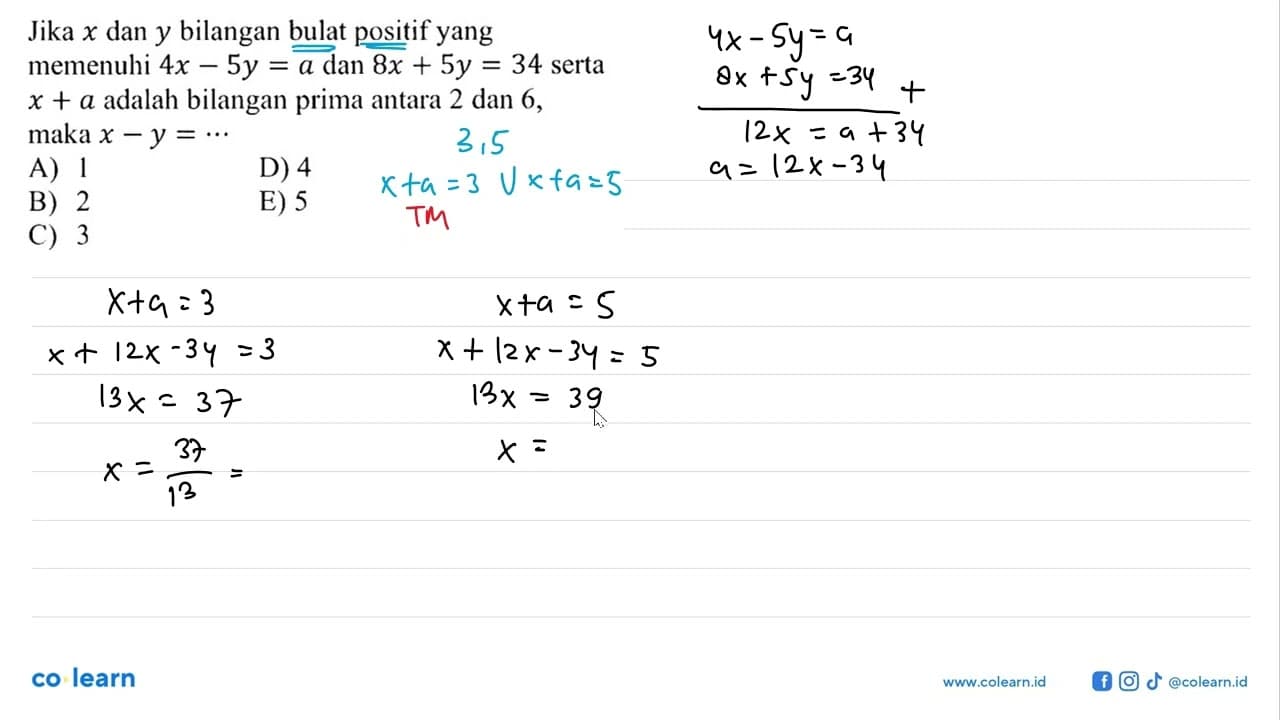 Jika x dan y bilangan bulat positif yang
memenuhi 4x − 5y = a dan 8x + 5y = 34 serta
x + a adalah bilangan prima antara 2 dan 6,
maka x − y = ⋯
A) 1
B) 2
C) 3
D) 4
E) 5
3,5
x+a = 3 ∨ x+a = 5
TM
4x − 5y = a
8x + 5y = 34
+
12x = a + 34
a = 12x − 34
x+a = 3
x + 12x − 34 = 3
13x = 37
x = 37/13 =
x+a = 5
x + 12x − 34 = 5
13x = 39
x =
co learn
www.colearn.id
@colearn.id